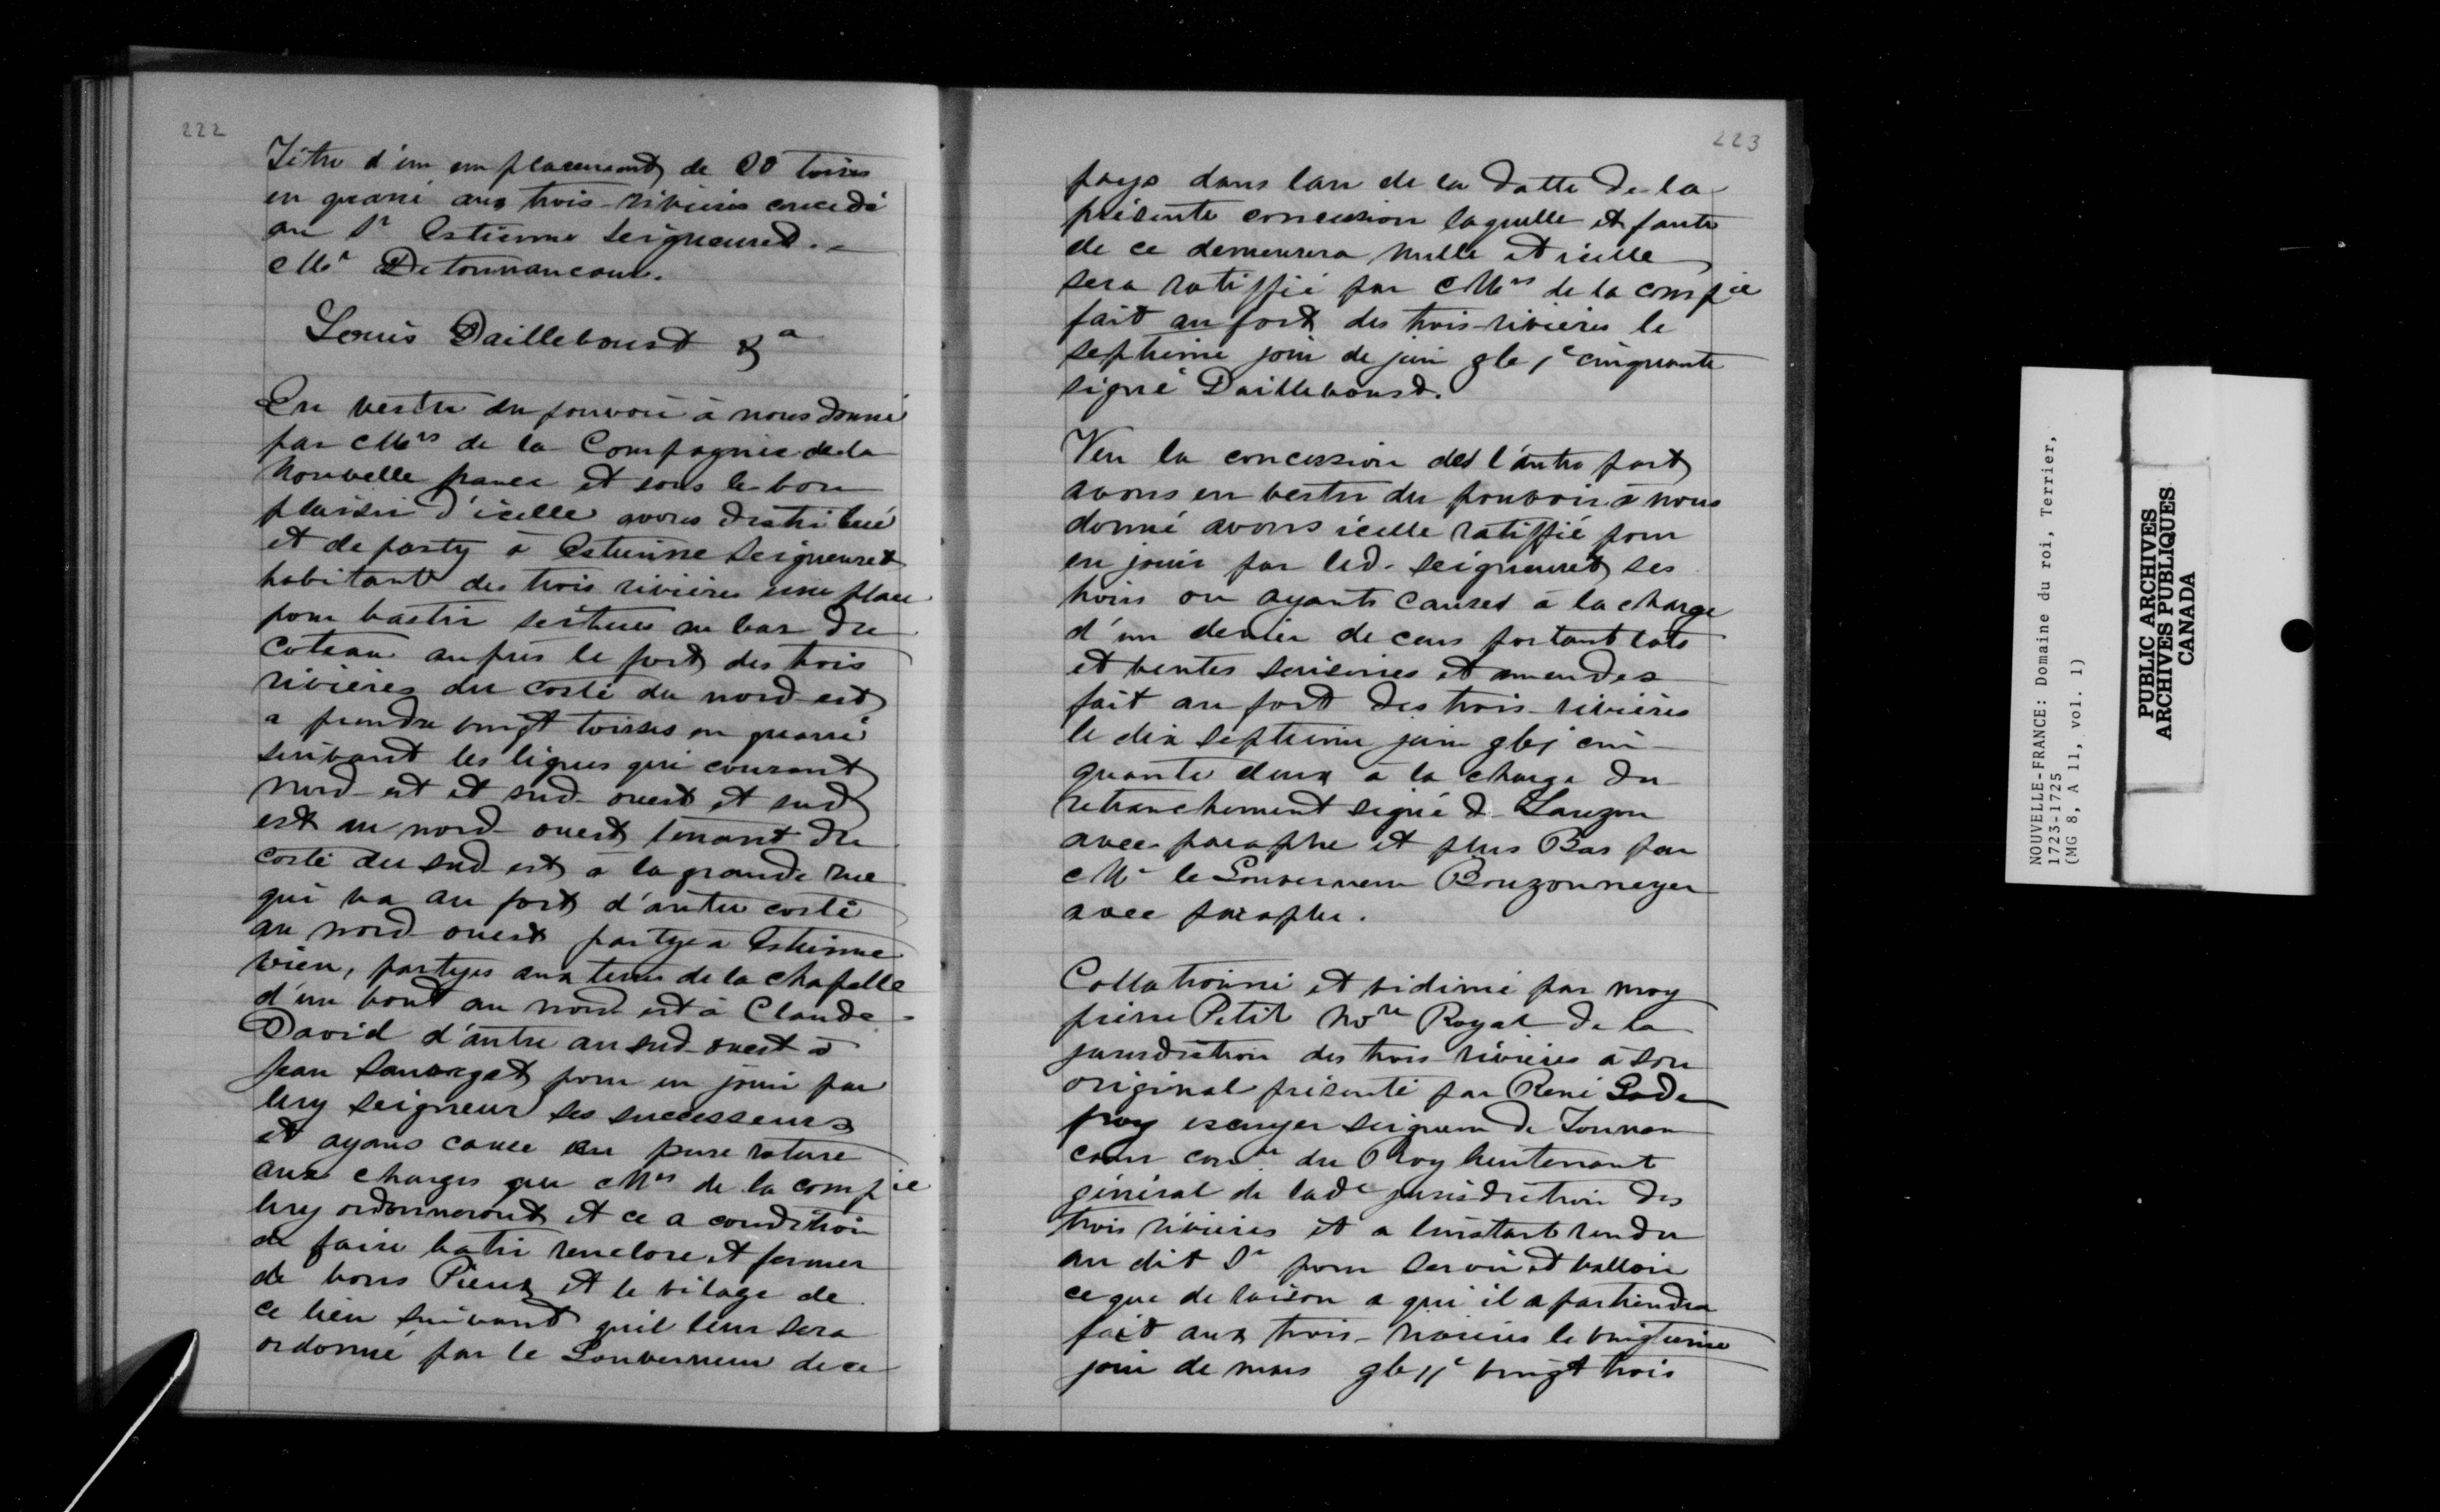 222
Titre d'un emplacement de 00 toises
en quarré aux trois-rivieres concedé
au Sr Estienne Seigneuret.
Mr Detonnancour.
Louis Dailleboust &a
En vertu du pouvoir à nous donné
par Mrs de la Compagnie de la
Nouvelle france et sous le bon
plaisir d'icelle avons distribué
et de party à Estienne Seigneuret
habitant des trois rivieres une place
pour bastir scitués au bas du
coteau auprès le fort des trois
rivières du costé du nord-est
a prendre vingt toises en quarré
suivant les lignes qui courent
nord-est et sud-ouest et sud
est au nord-ouest tenant du
costé du sud-est à la grande rue
qui va au fort d'autre costé
au nord-ouest partye a Estienne
vien, partyes aux terres de la chapelle
d'un bout au nord est à Claude
David d'autre au sud-ouest à
Jean Sauvaget pour en jouir par
luy seigneur ses successeurs
et ayans cause en pure roture
aux charges que Mrs de la compie
luy ordonneront et ce a condition
de faire batir renclore et fermer
de bons Pieux et le vilage de
ce lieu suivant quil leur sera
ordonné par le Gouverneur de ce
223
pays dans lan de la datte de la
présente concession laquelle et faute
de ce demeurera nulle et icelle
sera ratiffié par Mrs de la compie
fait au fort des trois-rivieres le
septieme jour de juin gbc jc cinquante
signé Dailleboust.
Veu la concession de l'autre part
avons en vertu du pouvoir à nous
donné avons icelle ratiffié pour
en jouir par led. Seigneuret ses
hoirs ou ayants causes à la charge
d'un denier de cens portant lots
et ventes saisines et amendes
fait au fort des trois-rivières
le dix septieme juin gbcj cin-
quante deux à la charge du
retranchement signé De Lauzon
avec paraphe et plus Bas par
Mr le Gouverneur Rouzonneyer
avec paraphe.
Collationné et vidimé par moy
pierre Petit Nore Royal de la
jurisdiction des trois-rivieres à son
original présenté par René Gode
froy escuyer seigneur de Tonnan
cour conler du Roy lieutenant
général de lade jurisdiction des
trois rivieres et a linstant rendu
au dit Sr pour servir et valloir
ce que de raison a qui il apartiendra
fait aux trois-rivieres le vingtieme
jour de mars gbc jjc vingt trois
NOUVELLE-FRANCE: Domaine du roi, Terrier,
1723-1725
(MG 8, A 11, vol. 1)
PUBLIC ARCHIVES
ARCHIVES PUBLIQUES
CANADA